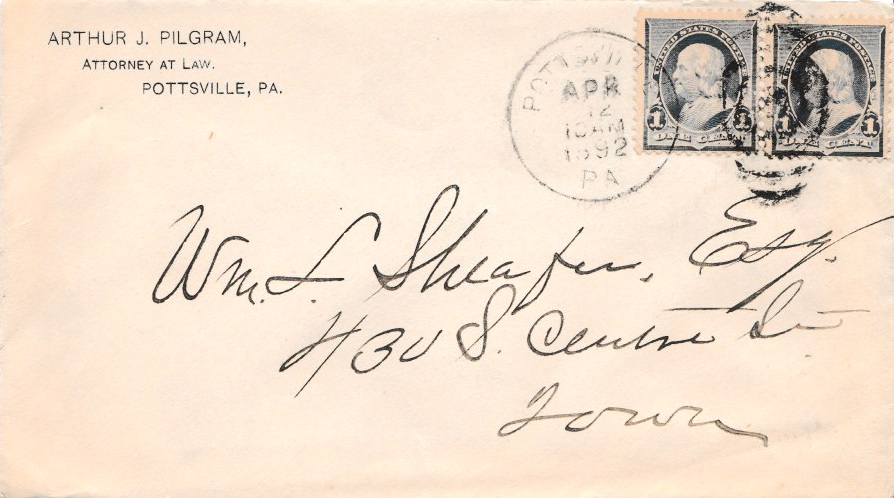 ARTHUR J. PILGRAM,
ATTORNEY AT LAW.
POTTSVILLE, PA.
POTTSVILLE
APR
12
10 AM
1892
PA
UNITED STATES POSTAGE
1 1
ONE CENT
UNITED STATES POSTAGE
1 1
ONE CENT
Wm. L. Sheafer, Esq.
430 S. Centre St
Town